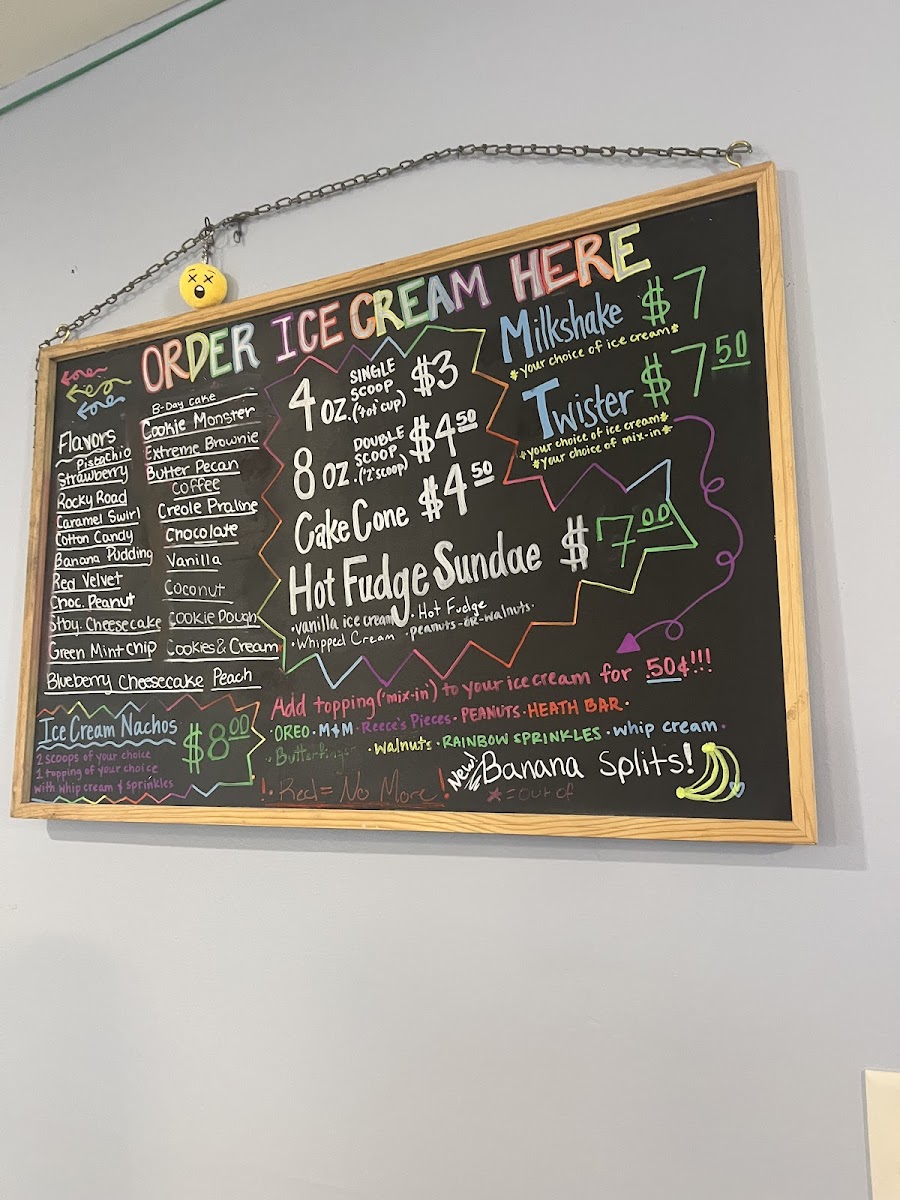 ORDER ICE CREAM HERE
Flavors
Pistachio
Strawberry
Rocky Road
Caramel Swirl
Cotton Candy
Banana Pudding
Red Velvet
Choc. Peanut
Stby. Cheesecake
Green Mint chip
Blueberry Cheesecake
B-Day cake
Cookie Monster
Extreme Brownie
Butter Pecan
Coffee
Creole Praline
Chocolate
Vanilla
Coconut
Cookie Dough
Cookies & Cream
Peach
4 oz. SINGLE SCOOP $3
8 oz. DOUBLE SCOOP ("2"scoop) $4.50
Cake Cone $4.50
Hot Fudge Sundae $7.00
·vanilla ice cream ·Hot Fudge
·Whipped Cream ·peanuts-OR-walnuts·
Milkshake $7
*your choice of ice cream*
Twister $7.50
*your choice of ice cream*
*your choice of mix-in*
Add topping ('mix-in') to your ice cream for .50¢!!!
·OREO·M&M·Reece's Pieces·PEANUTS·HEATH BAR·
·Butterfinger ·walnuts·RAINBOW SPRINKLES·whip cream·
Ice Cream Nachos $8.00
2 scoops of your choice
1 topping of your choice
with whip cream & sprinkles
!·Red = No More!
New! Banana Splits!
★ = out of